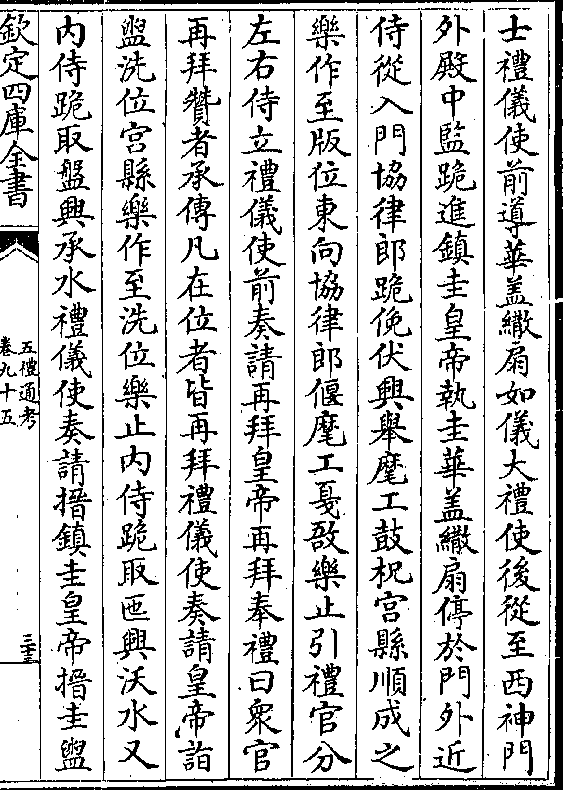 士禮儀使前導華盖繖扇如儀大禮使後從至西神門
外殿中監跪進鎮圭皇帝執圭華盖繖扇停於門外近
侍從入門協律郎跪俛伏興舉麾工鼓柷宫縣順成之
樂作至版位東向協律郎偃麾工戛敔樂止引禮官分
左右侍立禮儀使前奏請再拜皇帝再拜奉禮曰衆官
再拜贊者承傳凡在位者皆再拜禮儀使奏請皇帝詣
盥洗位宫縣樂作至洗位樂止内侍跪取匜興沃水又
内侍跪取盤興承水禮儀使奏請搢鎮圭皇帝搢圭盥
欽定四庫全書
五禮通考
卷九十五
三十三